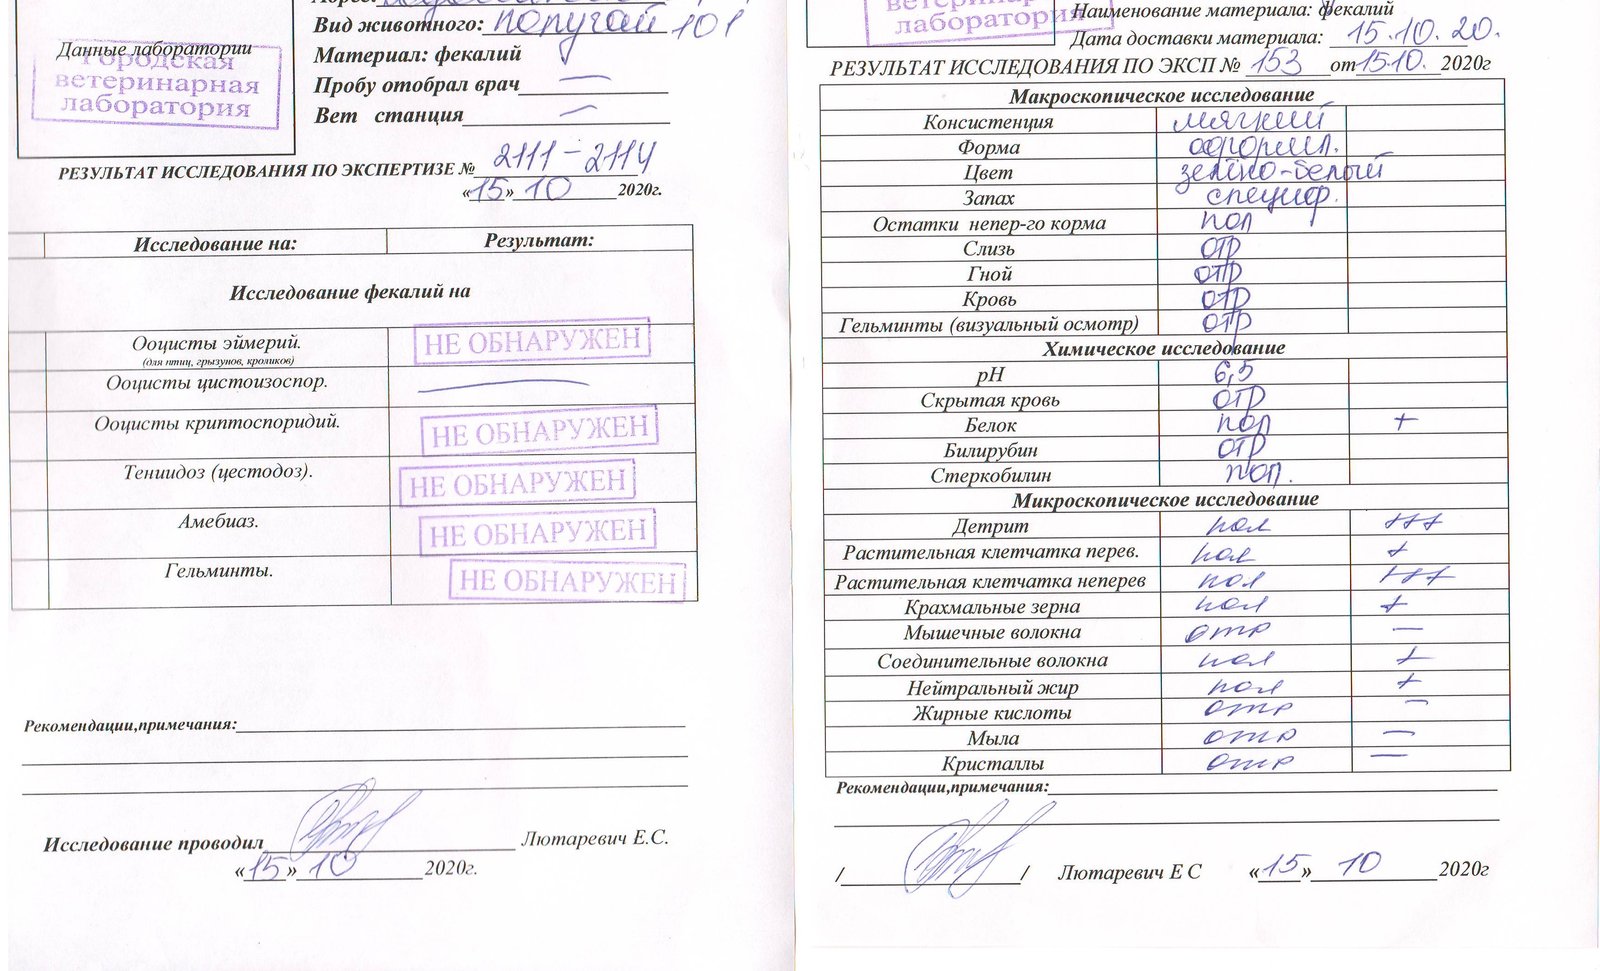 Вид животного: попугай
Данные лаборатории
Городская
ветеринарная
лаборатория
Материал: фекалий
Пробу отобрал врач —
Вет станция —
РЕЗУЛЬТАТ ИССЛЕДОВАНИЯ ПО ЭКСПЕРТИЗЕ № 2111-2114
«15» 10 2020г.
Исследование на: Результат:
Исследование фекалий на
Ооцисты эймерий. НЕ ОБНАРУЖЕН
(для птиц, грызунов, кроликов)
Ооцисты цистоизоспор. —
Ооцисты криптоспоридий. НЕ ОБНАРУЖЕН
Тениидоз (цестодоз). НЕ ОБНАРУЖЕН
Амебиаз. НЕ ОБНАРУЖЕН
Гельминты. НЕ ОБНАРУЖЕН
Рекомендации,примечания:
Исследование проводил Лютаревич Е.С.
«15» 10 2020г.
ветеринарная
лаборатория
Наименование материала: фекалий
Дата доставки материала: 15.10.20.
РЕЗУЛЬТАТ ИССЛЕДОВАНИЯ ПО ЭКСП № 153 от 15.10. 2020г
Макроскопическое исследование
Консистенция мягкий
Форма оформл.
Цвет зелено-белый
Запах специф.
Остатки непер-го корма пол
Слизь отр
Гной отр
Кровь отр
Гельминты (визуальный осмотр) отр
Химическое исследование
pH 6,5
Скрытая кровь отр
Белок пол +
Билирубин отр
Стеркобилин пол.
Микроскопическое исследование
Детрит пол +++
Растительная клетчатка перев. пол +
Растительная клетчатка неперев пол +++
Крахмальные зерна пол +
Мышечные волокна отр —
Соединительные волокна пол +
Нейтральный жир пол +
Жирные кислоты отр —
Мыла отр —
Кристаллы отр —
Рекомендации,примечания:
/ / Лютаревич Е С «15» 10 2020г